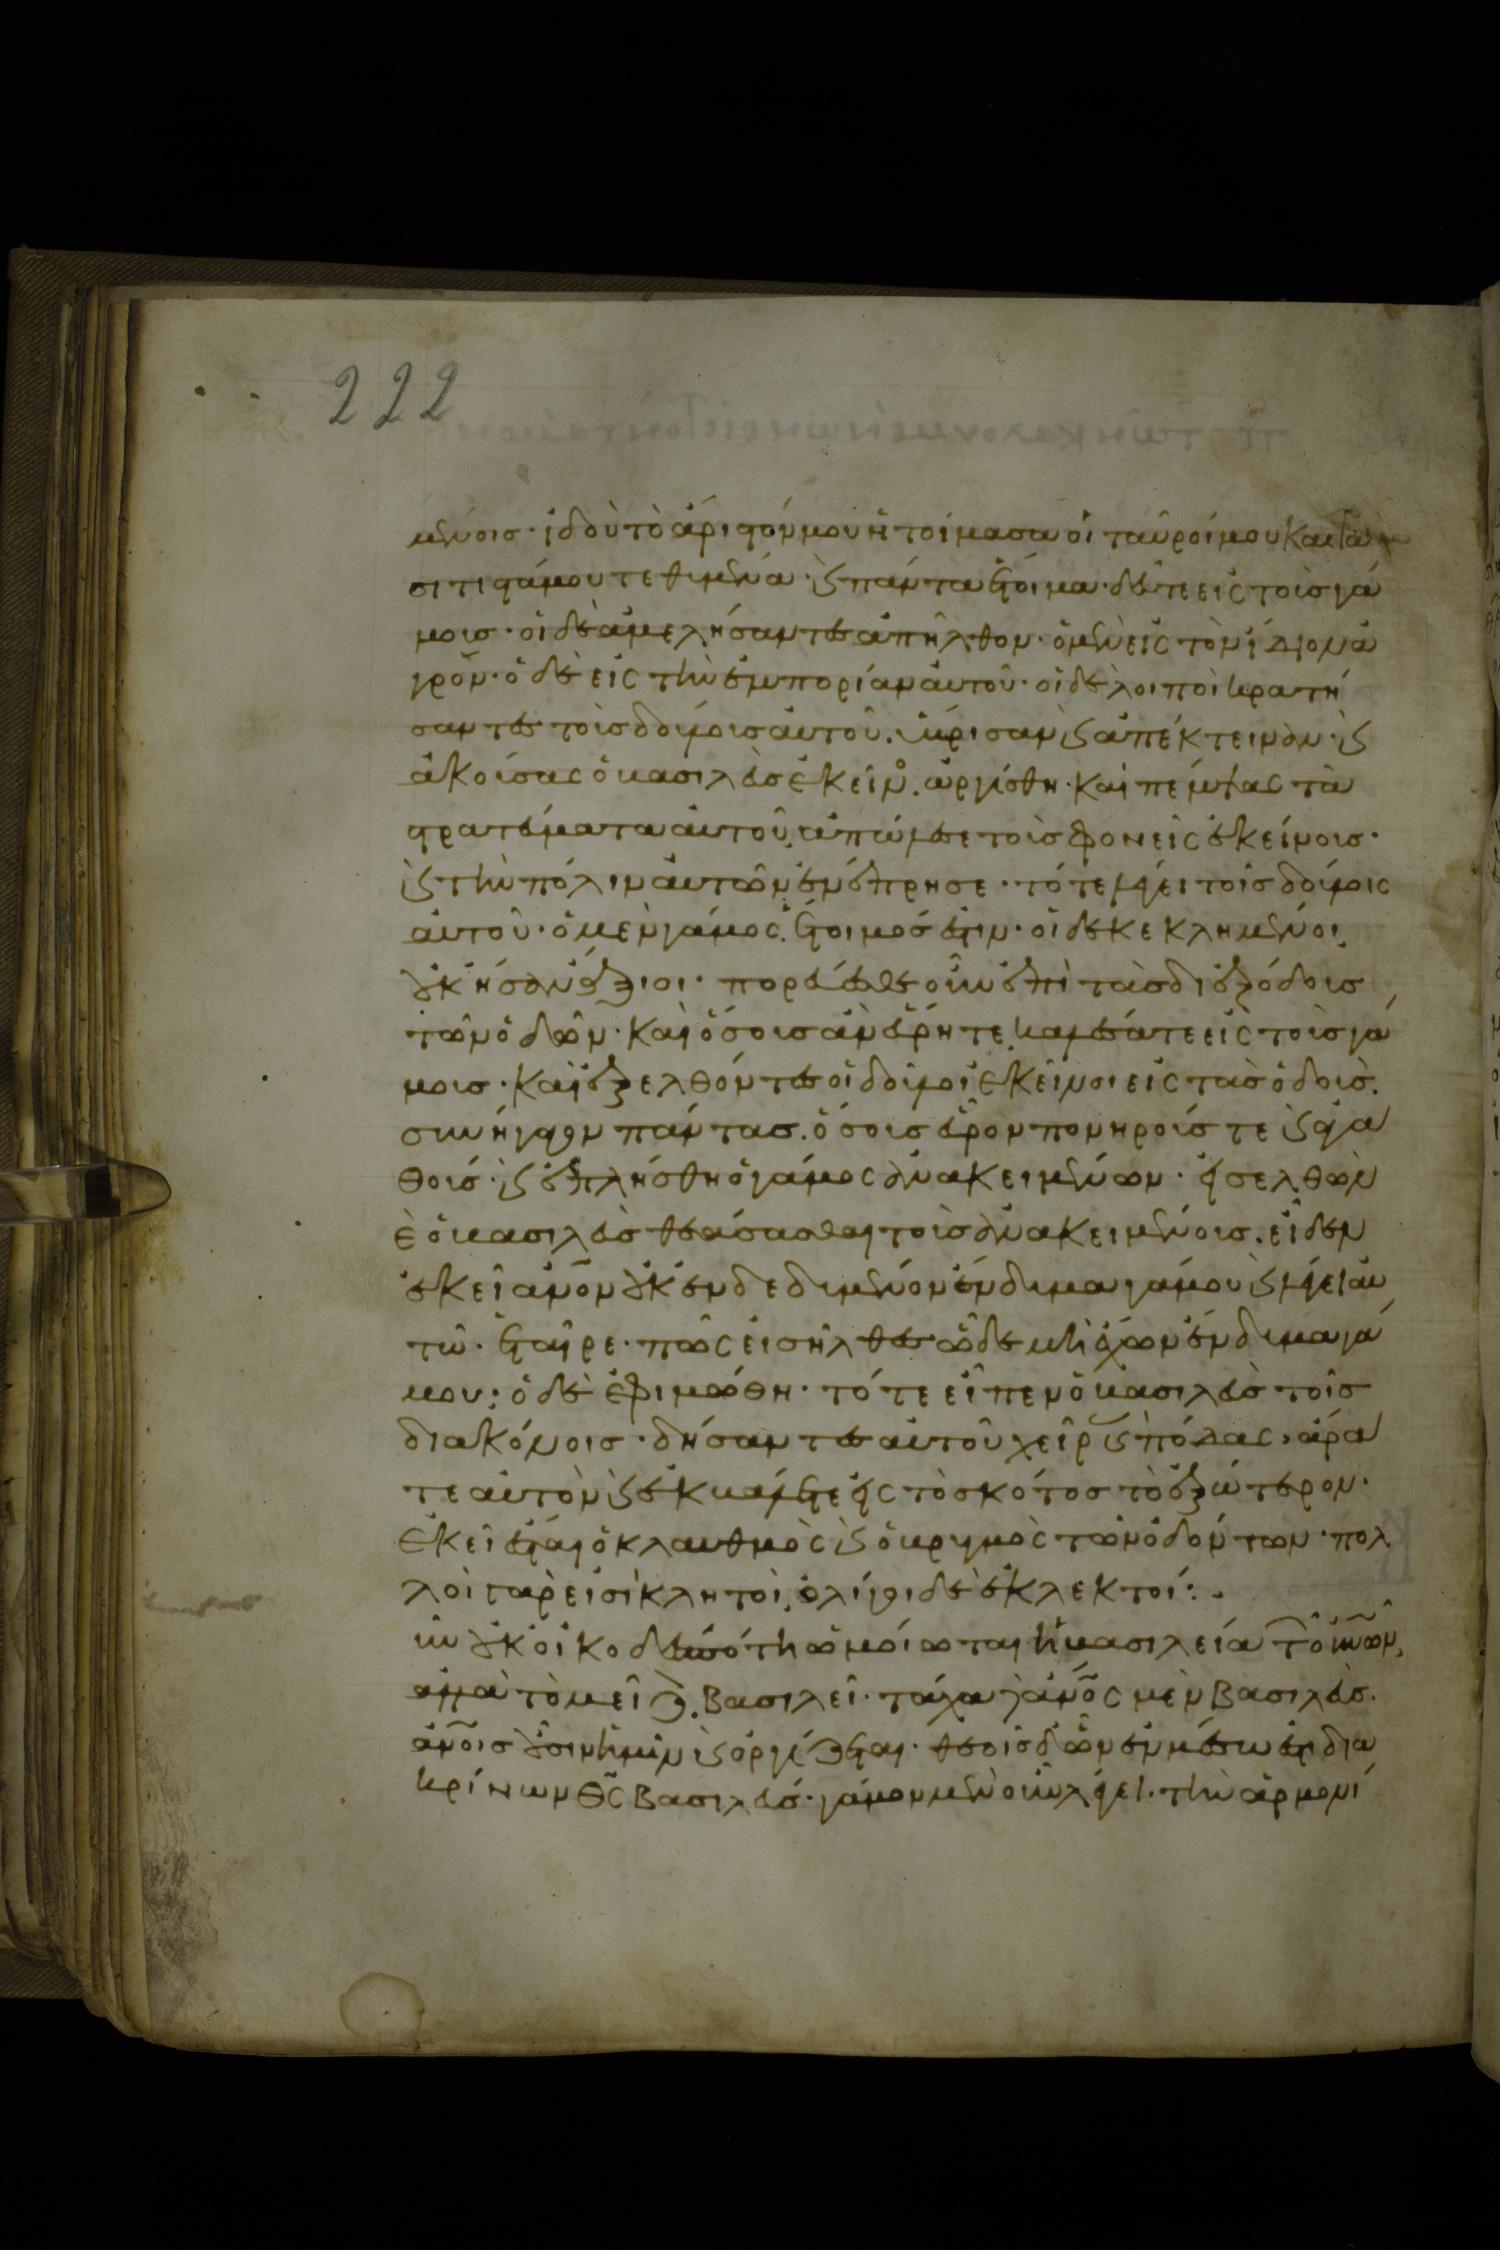 222
μένοις· ἰδοὺ τὸ ἄριστόν μου ἡτοίμασα οἱ ταῦροί μου καὶ τὰ
σιτιστά μου τεθυμένα· ϗ πάντα ἕτοιμα· δεῦτε εἰς τοὺς γά
μους· οἱ δὲ ἀμελήσαντες ἀπῆλθον· ὁ μὲν εἰς τὸν ἴδιον ἀ
γρόν· ὁ δὲ εἰς τὴν ἐμπορίαν αὐτοῦ· οἱ δὲ λοιποὶ κρατή
σαντες τοὺς δούλους αὐτοῦ. ὕβρισαν ϗ ἀπέκτειναν· ϗ
ἀκούσας ὁ βασιλεὺς ἐκεῖνος. ὠργίσθη· καὶ πέμψας τὰ
στρατεύματα αὐτοῦ. ἀπώλεσε τοὺς φονεῖς ἐκείνους·
ϗ τὴν πόλιν αὐτῶν ἐνέπρησε· τότε λέγει τοῖς δούλοις
αὐτοῦ· ὁ μὲν γάμος. ἕτοιμός ἐστιν· οἱ δὲ κεκλημένοι
οὐκ ἦσαν ἄξιοι· πορεύεσθε οὖν ἐπὶ τὰς διεξόδους
τῶν ὁδῶν· καὶ ὅσους ἂν εὕρητε. καλέσατε εἰς τοὺς γά
μους· καὶ ἐξελθόντες οἱ δοῦλοι ἐκεῖνοι εἰς τὰς ὁδοὺς.
συνήγαγον πάντας. ὅσους εὗρον πονηρούς τε ϗ ἀγα
θούς· ϗ ἐπλήσθη ὁ γάμος ἀνακειμένων· εἰσελθὼν
δὲ ὁ βασιλεὺς θεάσασθαι τοὺς ἀνακειμένους. εἶδεν
ἐκεῖ ἀνον οὐκ ἐνδεδυμένον ἔνδυμα γάμου ϗ λέγει αὐ
τῷ· ἑταῖρε· πῶς εἰσῆλθες ὧδε μὴ ἔχων ἔνδυμα γά
μου; ὁ δὲ ἐφιμώθη· τότε εἶπεν ὁ βασιλεὺς τοῖς
διακόνοις· δήσαντες αὐτοῦ χεῖρας ϗ πόδας, ἄρα
τε αὐτὸν ϗ ἐκβάλετε εἰς τὸ σκότος τὸ ἐξώτερον·
ἐκεῖ ἔσται ὁ κλαυθμὸς ϗ ὁ βρυγμὸς τῶν ὀδόντων· πολ
λοὶ γάρ εἰσι κλητοὶ. ὀλίγοι δὲ ἐκλεκτοί:
ἀνω βασιλεῖ· τάχα γὰρ ἀνος μὲν βασιλεὺς.
κρίνων θς βασιλεύς· γάμον μὲν οὖν λέγει· τὴν ἁρμονί